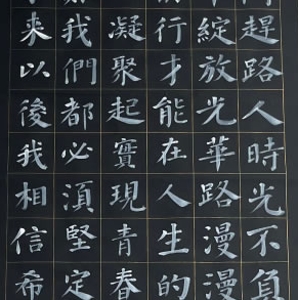 趕路人時光不負
綻放光華路漫漫
行才能在人生的
凝聚起實現青春
我們都必須堅定
來以後我相信希